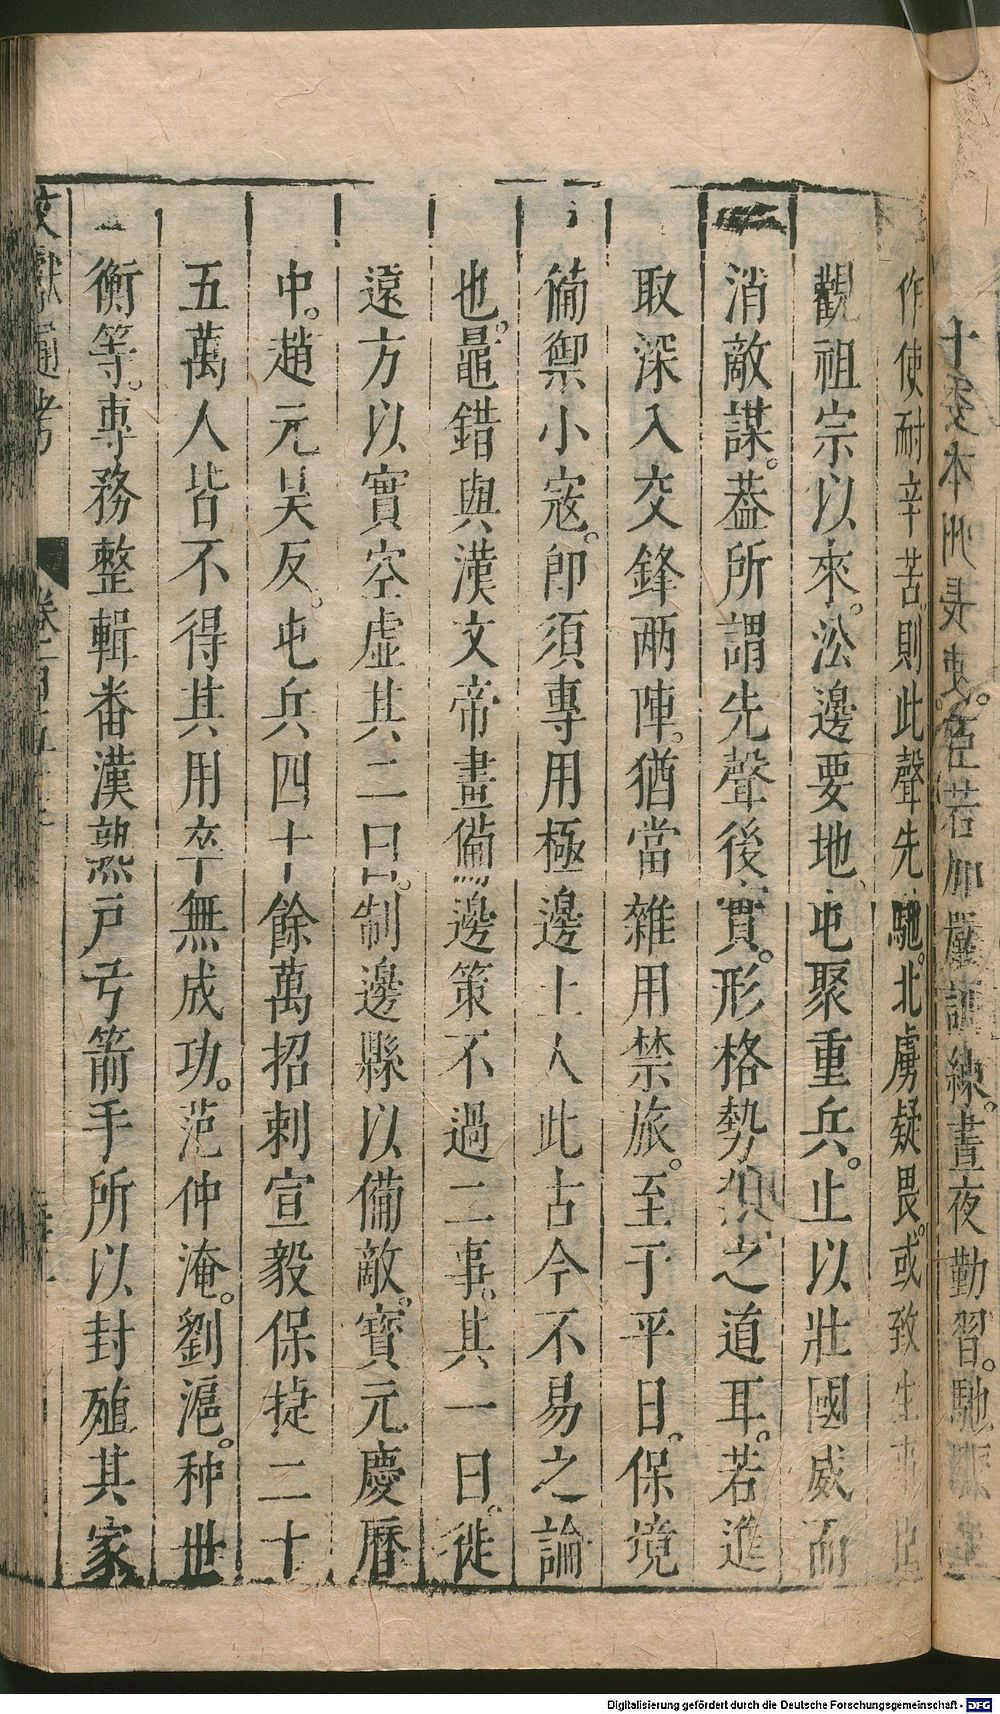 十委本州長吏。臣若加嚴訓練。晝夜勤習。馳
作使耐辛苦則此聲先馳。北虜疑畏。或致生事臣
觀祖宗以來。㳂邊要地屯聚重兵。止以壯國威而
消敵謀。葢所謂先聲後實。形格勢之道耳。若進
取深入交鋒兩陣。猶當雜用禁旅。至于平日。保境
備禦小寇。即須專用極邊土人此古今不易之論
也。鼂錯與漢文帝畫備邊策不過二事。其一曰。徙
遠方以實空虛其二曰。制邊縣以備敵。寶元慶曆
中。趙元昊反。屯兵四十餘萬招刺宣毅保捷二十
五萬人皆不得其用卒無成功。范仲淹。劉滬。种世
衡等。專務整輯番漢熟戶弓箭手所以封殖其家
文獻通考
Digitalisierung gefördert durch die Deutsche Forschungsgemeinschaft - DFG